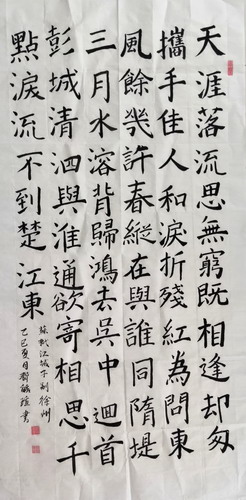 天涯落流思無窮既相逢却匆
攜手佳人和淚折殘紅為問東
風餘幾許春縱在與誰同隋堤
三月水溶背歸鴻去吳中迴首
彭城清泗與淮通欲寄相思千
點淚流不到楚江東
蘇軾江城子别徐州
乙巳夏月書